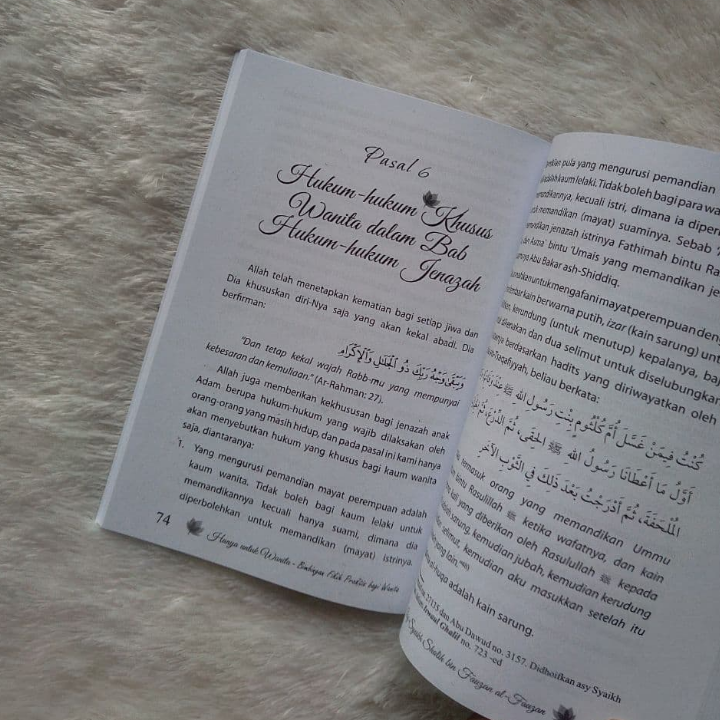 Pasal 6
Hukum-hukum Khusus
Wanita dalam Bab
Hukum-hukum Jenazah
Allah telah menetapkan kematian bagi setiap jiwa dan
Dia khususkan diri-Nya saja yang akan kekal abadi. Dia
berfirman:
وَيَبْقَىٰ وَجْهُ رَبِّكَ ذُو الْجَلَالِ وَالْإِكْرَامِ
"Dan tetap kekal wajah Rabb-mu yang mempunyai
kebesaran dan kemuliaan." (Ar-Rahman: 27).
Allah juga memberikan kekhususan bagi jenazah anak
Adam berupa hukum-hukum yang wajib dilaksakan oleh
orang-orang yang masih hidup, dan pada pasal ini kami hanya
akan menyebutkan hukum yang khusus bagi kaum wanita
saja, diantaranya:
1. Yang mengurusi pemandian mayat perempuan adalah
kaum wanita. Tidak boleh bagi kaum lelaki untuk
memandikannya kecuali hanya suami, dimana dia
diperbolehkan untuk memandikan (mayat) istrinya.
74
Hanya untuk Wanita - Bimbingan Fikih Praktis bagi Wanita
pula yang mengurusi pemandian
adalah kaum lelaki. Tidak boleh bagi para
kecuali istri, dimana ia
memandikan (mayat) suaminya. Sebab
jenazah istrinya Fathimah bintu
Asma' bintu 'Umais yang memandikan
Abu Bakar ash-Shiddiq.
untuk mengafani mayat perempuan
kain berwarna putih, izar (kain sarung)
kerundung (untuk menutup) kepalanya,
dikenakan dan dua selimut untuk diselubungkan
berdasarkan hadits yang diriwayatkan oleh
beliau berkata:
كُنْتُ فِيمَنْ غَسَّلَ أُمَّ كُلْثُومٍ بِنْتَ رَسُولِ اللهِ ﷺ
أَوَّلُ مَا أَعْطَانَا رَسُولُ اللهِ ﷺ الحِقَى، ثُمَّ الدِّرْعَ، ثُمَّ
الْمُلْحَفَةَ، ثُمَّ أُدْرِجَتْ بَعْدَ ذَلِكَ فِي الثَّوْبِ الآخَرِ
termasuk orang yang memandikan Ummu
bintu Rasulillah ﷺ ketika wafatnya, dan kain
kali yang diberikan oleh Rasulullah ﷺ kepada
sarung, kemudian jubah, kemudian kerudung
selimut, kemudian aku masukkan setelah itu
yang lain.
adalah kain sarung.
27135 dan Abu Dawud no. 3157. Didhoifkan asy Syaikh
Irwaul Ghalil no. 723 -ed
Syaikh Shalih bin Fauzan al-Fauzan